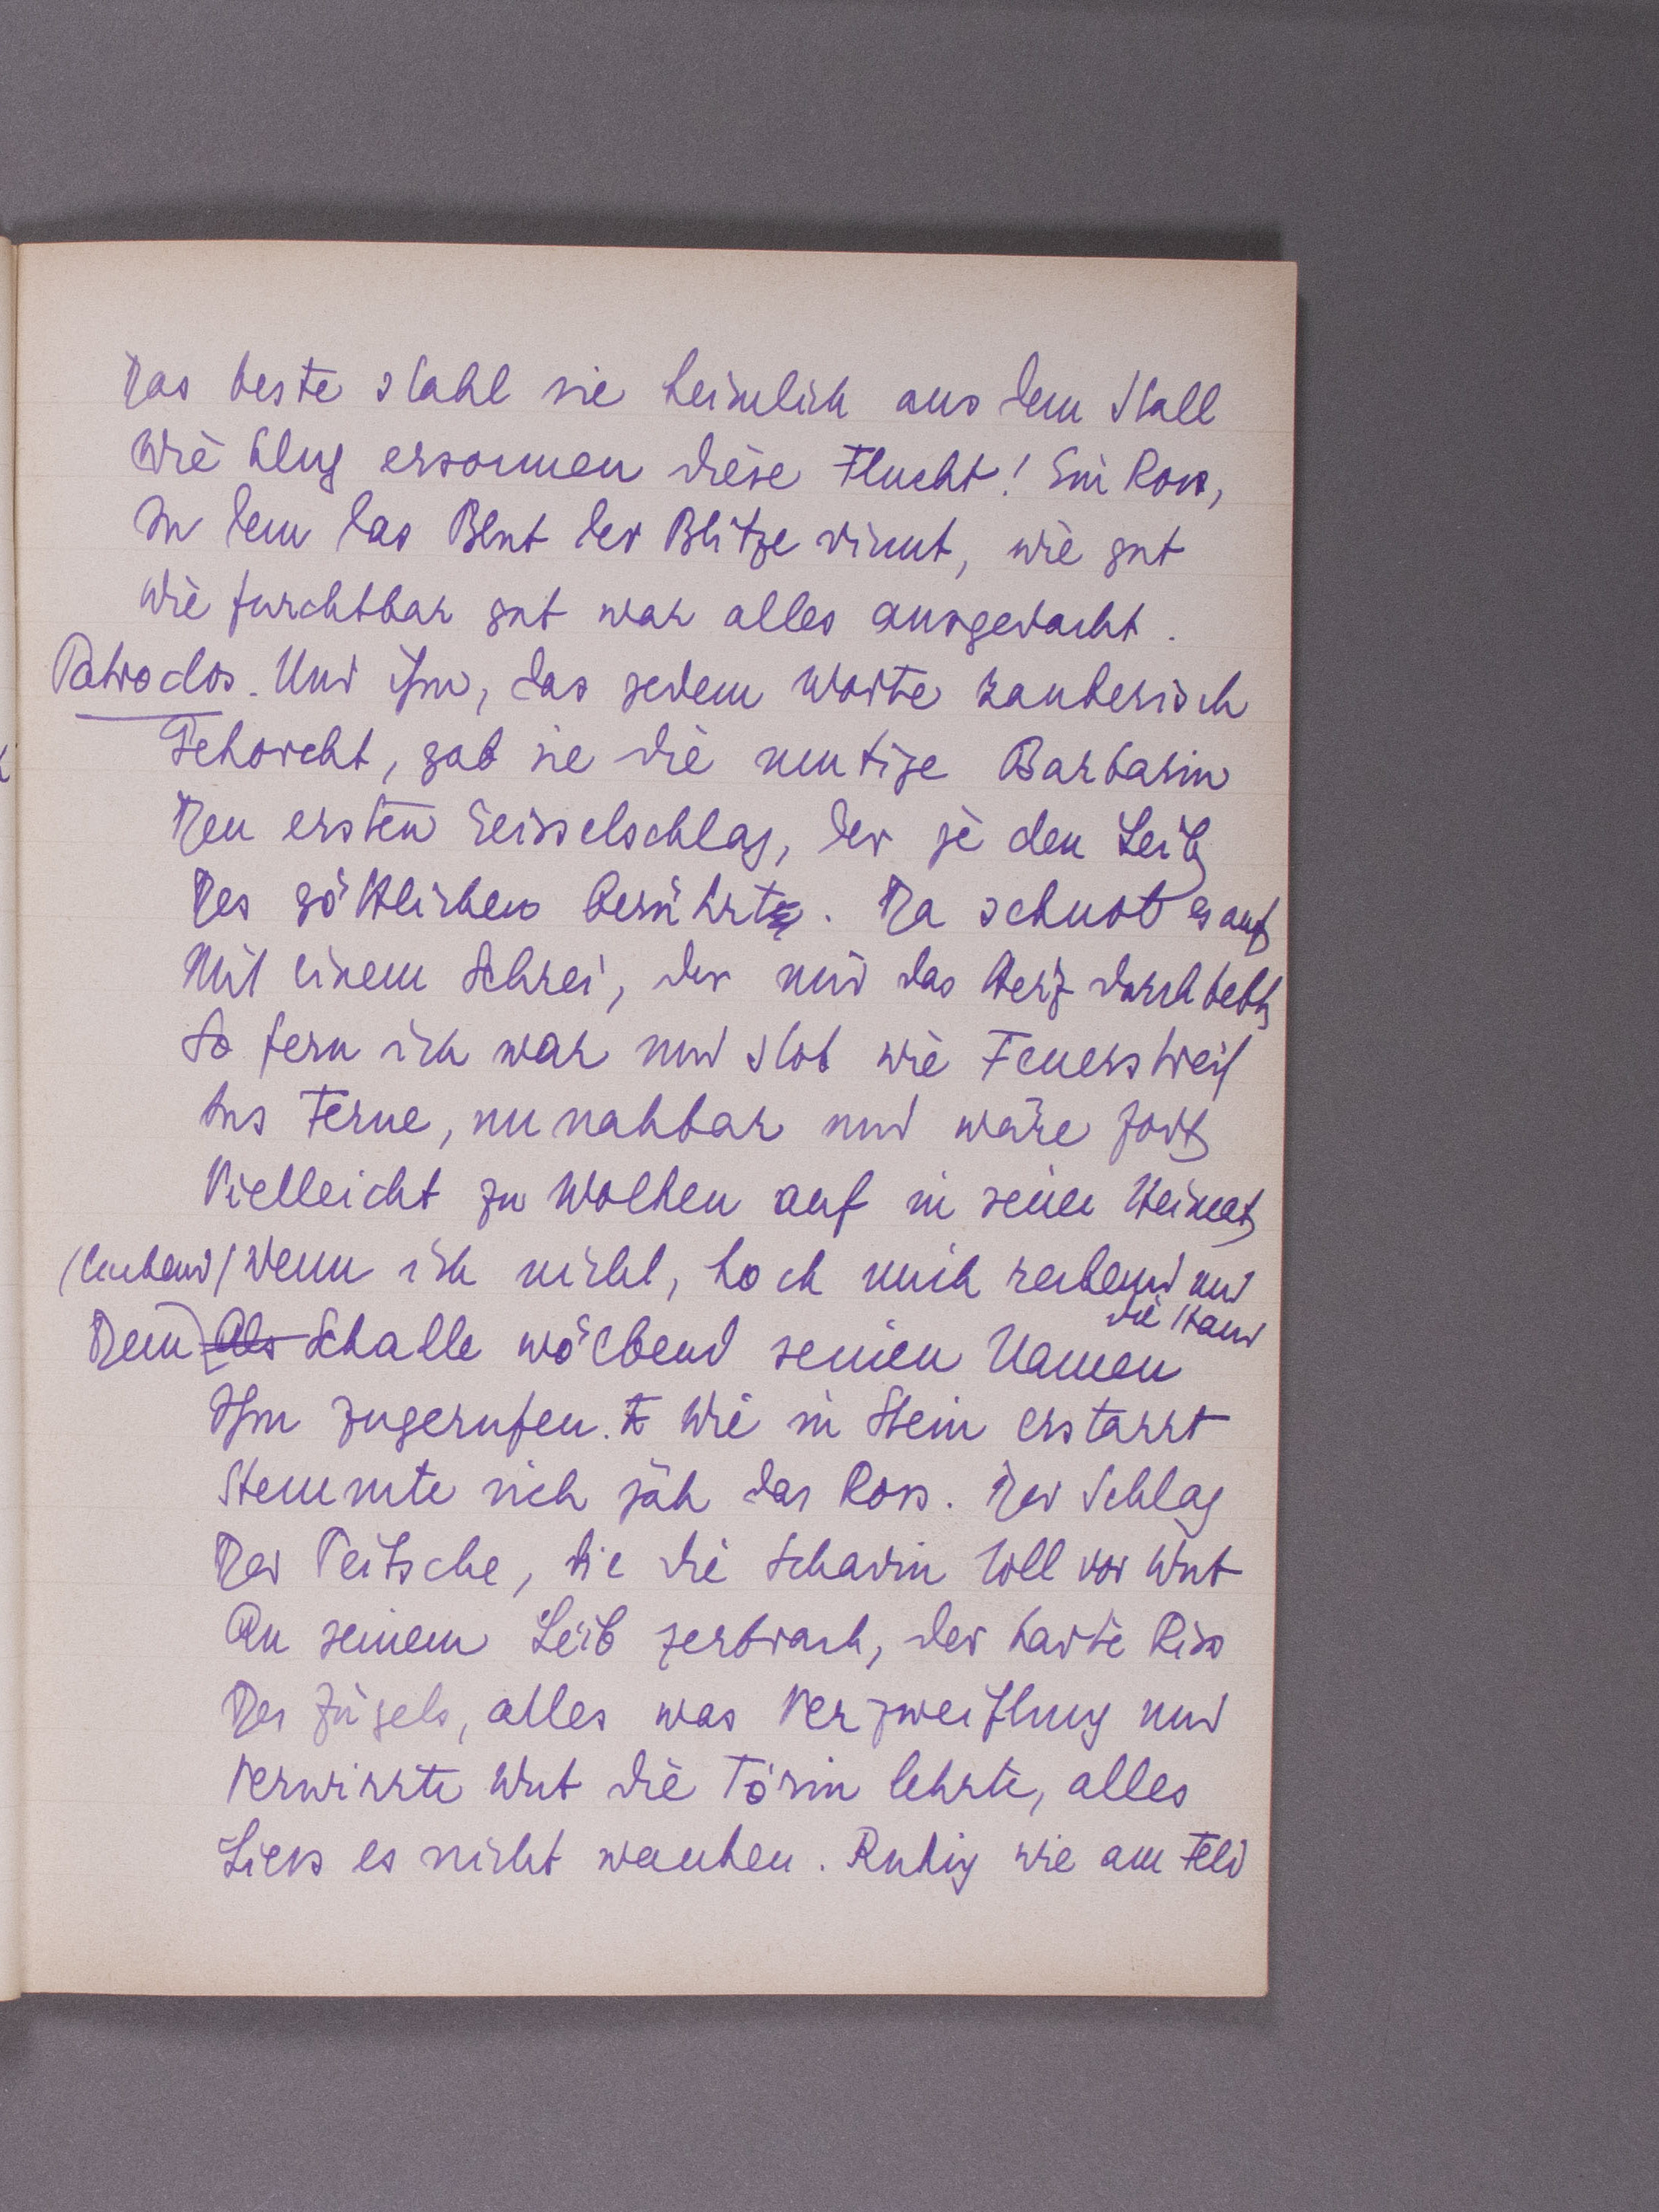 Das beste stahl sie heimlich aus dem Stall
Wie klug ersonnen diese Flucht! Ein Ross,
In dem das Blut der Blitze rinnt, wie gut
Wie furchtbar gut war alles ausgedacht.
Patroclos. Und ihm, das jedem Worte zauberisch
Gehorcht, gab sie die mutige Barbarin
Den ersten Geisselschlag, der je den Leib
Des göttlichen berührte. Da schnob es auf
Mit einem Schrei, der mir das Herz durchbebt
So fern ich war und stob wie Feuerstreif
Ins Ferne, unnahbar und wäre fort
Vielleicht zu Wolken auf in seine Heimat
Wenn ich nicht, hoch mich reckend und
die Hand
Dem Als Schalle wölbend seinen Namen
Ihm zugerufen. Wie in Stein erstarrt
Stemmte sich jäh das Ross. Der Schlag
Der Peitsche, die die toll vor Wut
An seinem Leib zerbrach, der harte Riss
Des Zügels, alles was Verzweiflung und
Verwirrte Wut die Törin lehrte, alles
Liess es nicht wanken. Ruhig wie am Feld